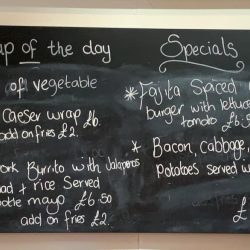 up of the day
of vegetable
Caeser wrap £6.
add on fries £2.
ork Burrito with Jalapenos
ad + rice Served
otle mayo £6.50
add on fries £2.
Specials
* Fajita Spiced
burger with lettuc
tomato £6.5
* Bacon, cabbage,
potatoes served w
£